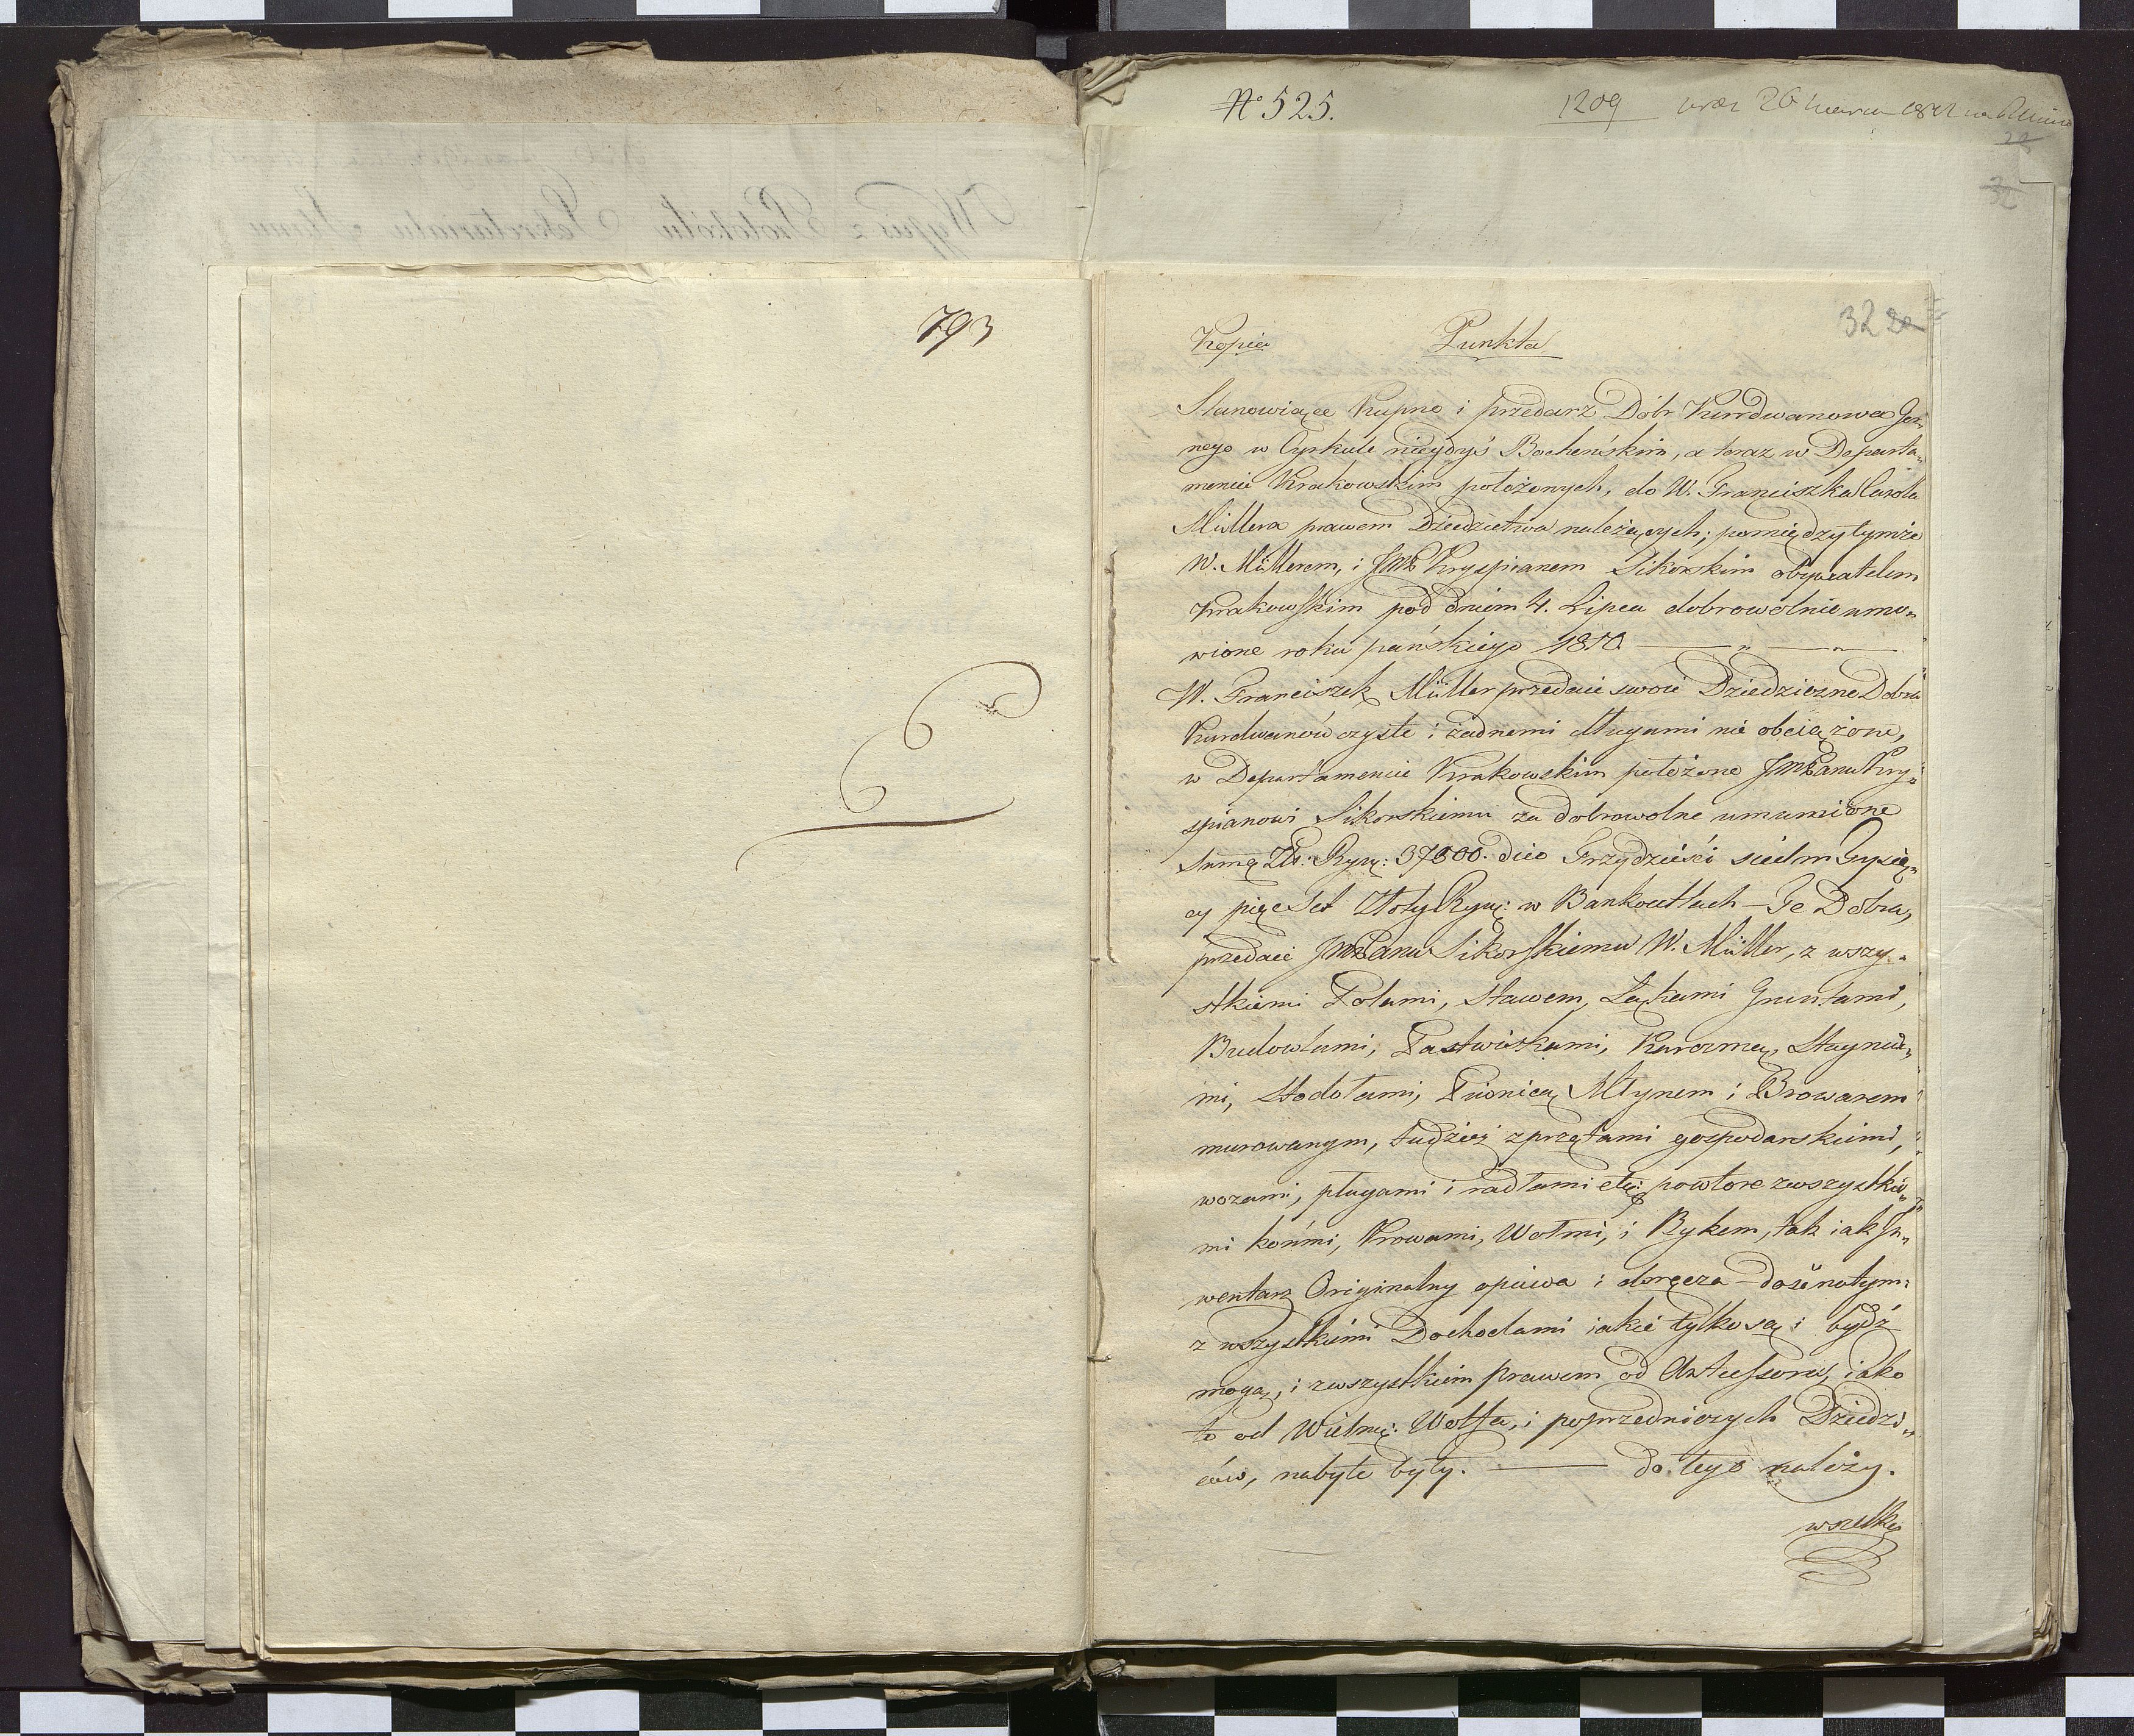 793
N° 525.
1209
32
Kopia Punkta
Stanowiące Kupno i przedarz Dóbr Kurdwanowa Gor„
nego w Cyrkule niegdyś Bocheńskim, a teraz w Departa„
mencie Krakowskim położonych, do W. Franciszka Carola
Müllera prawem Dziedzictwa należących; pomiędzy tymże
W. Müllerem, i JMP Kryspianem Sikorskim obywatelem
Krakowskim pod dniem 4. Lipca dobrowolnie umó„
wione roku pańskiego 1810 — „ — „ —
W. Franciszek Müller przedaie swoie Dziedziczne Dobra
Kurdwanów czyste i żadnemi długami nie obciążone,
w Departamencie Krakowskim położone JMPanu Kry„
spianowi Sikorskiemu za dobrowolne umumione
Sumę Zł: Ryn: 37500. dico Trzydzieści siedm Tysię„
cy pięcset Złoty Ryn: w Bankocetlach — Te Dobra,
przedaie JMPanu Sikorskiemu W. Müller, z wszy„
stkiemi Polami, Stawem, Łąkami Gruntami,
Budowlami, Pastwiskami, Karczmą, Staynia„
mi, Stodołami, Piwnicą Młynem i Browarem
murowanym, tudzież zprzętami gospodarskiemi,
wozami, pługami i radłami etc: powtore zwszystkie„
mi końmi, Krowami, Wołmi, i Bykem, tak iak Jn„
wentarz Originalny opiewa i doręcza — dość natym:
z wszystkiemi Dochodami iakie tylko są i bydź
mogą, i zwszystkiem prawem od Antessorów, iako
to od Wielm: Wolfa, i poprzedniczych Dziedzi„
ców, nabyte były. — do tego należy.
wszelka